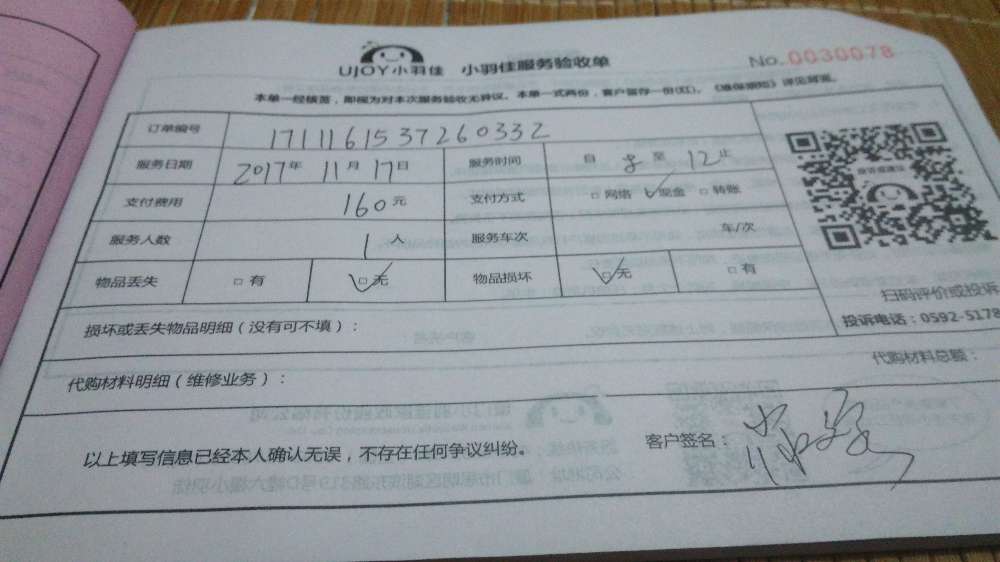 UJOY小羽佳 小羽佳服务验收单 No.0030078
本单一经核签，即视为对本次服务验收无异议。本单一式两份，客户留存一份(红)。《维保须知》详见背面。
订单编号 1711161537260332
服务日期 2017年 11月 17日 服务时间 自 8 至 12 止
支付费用 160元 支付方式 □ 网络 ☑ 现金 □ 转账
服务人数 1人 服务车次 年/次
物品丢失 □ 有 ☑ 无 物品损坏 ☑ 无 □ 有
扫码评价或投诉
损坏或丢失物品明细（没有可不填）： 投诉电话：0592-5178
代购材料明细（维修业务）： 代购材料总额：
以上填写信息已经本人确认无误，不存在任何争议纠纷。 客户签名：